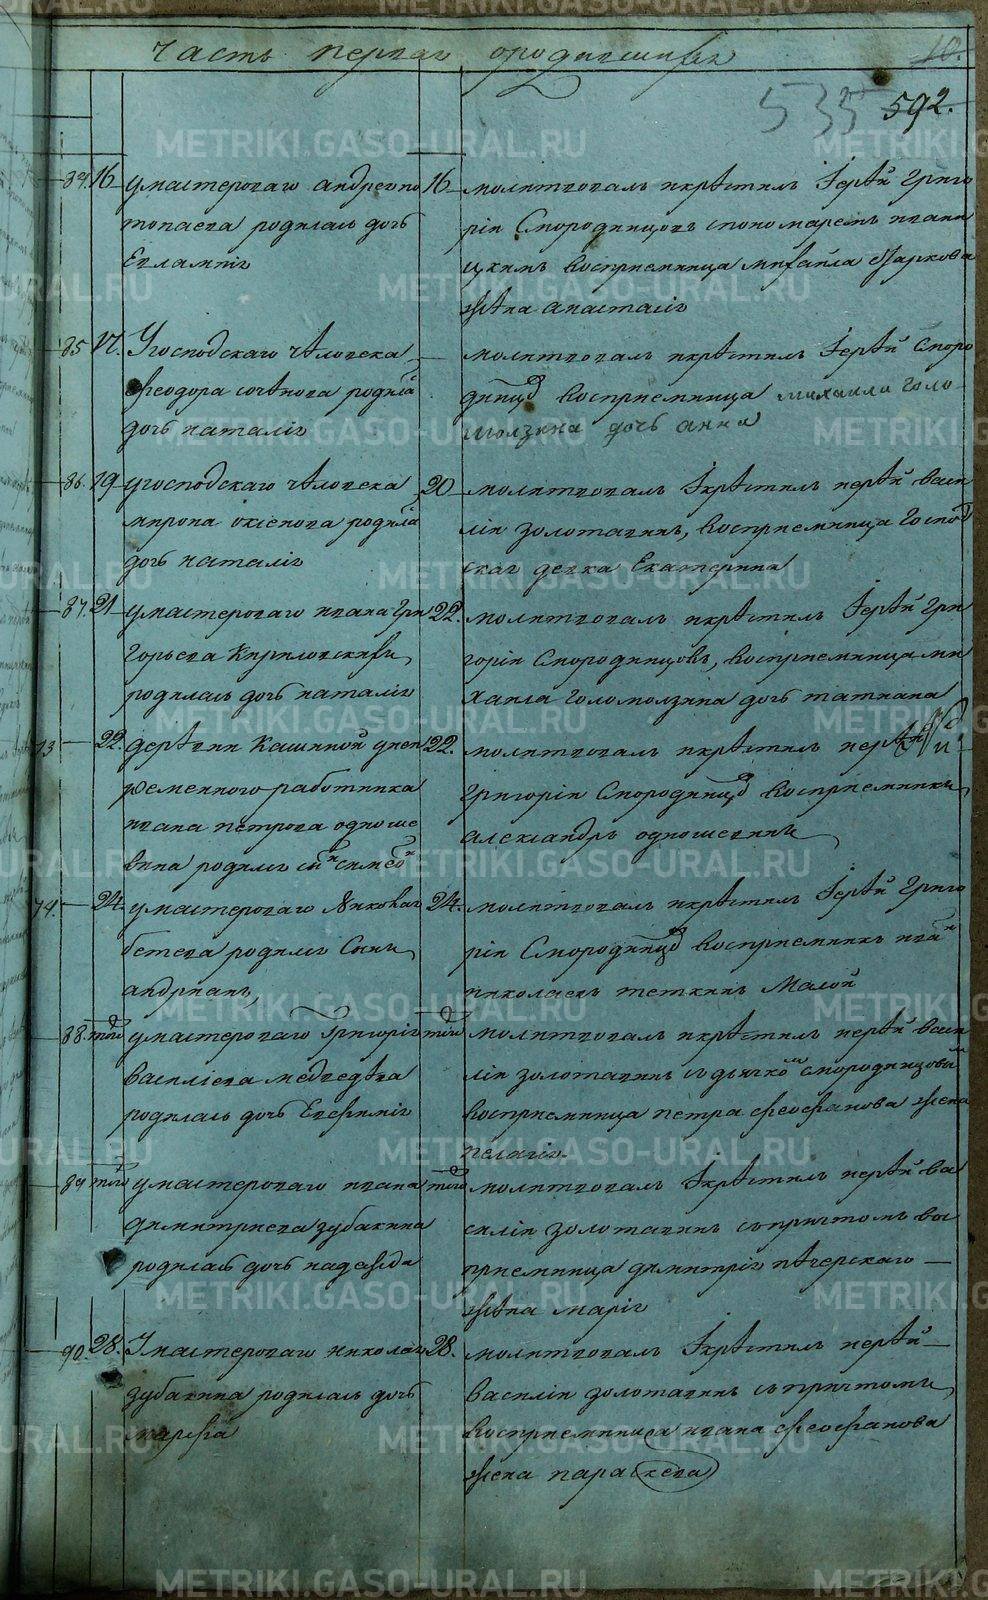 часть первая о родившихся
10.
535 592.
84. 16 у мастероваго андрея по 16
топаева родилась дочь
Евлампія
молитвовалъ и крѣстилъ Іерѣй Григо
рій Смородинцовъ с пономаремъ ивани
цкимъ восприемница михаила Фаркова
жѣна анастасія
85 17. У господскаго чѣловека
феодора сочѣнова родила
дочь наталія
молитвовалъ и крѣстилъ Іерѣй Сморо
динцо восприемница михаила голо
молзина дочь анна
86. 19 у господскаго чѣловека 20
мирона родила
дочь наталія
молитвовалъ і крѣстилъ иерѣй васи
лій золотавинъ, восприемница Господ
ская девка Екатерина
87. 21 у мастероваго ивана Гри 22.
горьева Кириловскихъ
родилась дочь наталія
молитвовалъ и крѣстилъ Іерѣй Гри
горій Смородинцовъ, восприемница ми
хаила Голомолзина дочь татиана
73 22. дерѣвни Кашиной 22.
ременного работника
ивана петрова одноше
вина родился сынъ симеонъ
молитвовалъ и крѣстилъ иерѣй
григорій Смородинцо восприемникъ
александръ одношевинъ
74. 24. у мастероваго Якова 24.
бетева родился Сынъ
андрианъ
молитвовалъ и крѣстилъ Іерѣй Григо
рій Смородинцо восприемникъ иван
николаевъ теткинъ Малой
88. того у мастероваго Григорія того
василіева медведѣва
родилась дочь Евфимія
молитвовалъ и крѣстилъ иерѣй васи
лій золотавинъ с дьячком смородинцовым
восприемница петра феофанова жена
пелагія
89 того у мастероваго ивана того
димитриева зубакина
родилась дочь надежда
молитвовалъ і крѣстилъ иерѣй ва
силій золотавинъ с причтомъ вос
приемница димитрія пѣчерскаго
жѣна марія
90. 28. У мастероваго николая 28.
зубакина родилась дочь
марфа
молитвовалъ і крѣстилъ иерѣй
василій золотавинъ с причтомъ
восприемница ивана феофанова
жена параскева
METRIKI.GASO-URAL.RU